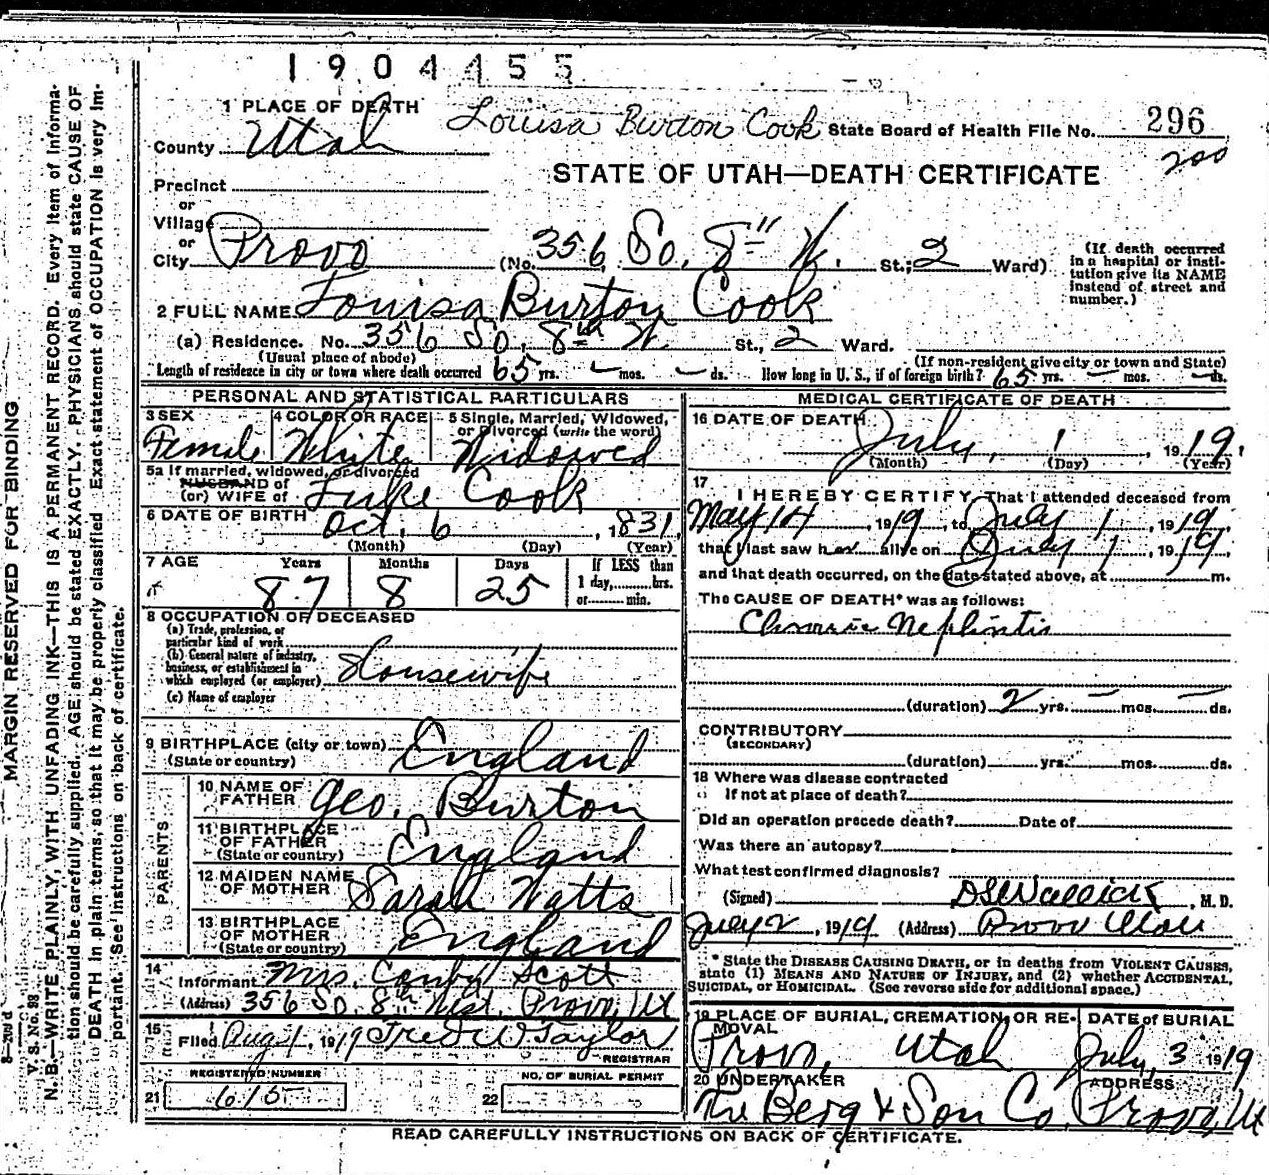 1904455
1 PLACE OF DEATH
Louisa Burton Cook
State Board of Health File No. 296
County Utah
200
STATE OF UTAH—DEATH CERTIFICATE
Precinct
or
Village
or
City Provo (No. 356 So. 8th W. St.; 2 Ward)
(If death occurred in a hospital or institution give its NAME instead of street and number.)
2 FULL NAME Louisa Burton Cook
(a) Residence. No. 356 So. 8th W. St., 2 Ward.
(Usual place of abode) (If non-resident give city or town and State)
Length of residence in city or town where death occurred 65 yrs. — mos. — ds. How long in U. S., if of foreign birth? 65 yrs. — mos. — ds.
PERSONAL AND STATISTICAL PARTICULARS
3 SEX Female
4 COLOR OR RACE White
5 Single, Married, Widowed, or Divorced (write the word) Widowed
5a If married, widowed, or divorced
HUSBAND of
(or) WIFE of Luke Cook
6 DATE OF BIRTH Oct. 6, 1831
(Month) (Day) (Year)
7 AGE Years 87 Months 8 Days 25
If LESS than 1 day,........hrs. or........min.
8 OCCUPATION OF DECEASED
(a) Trade, profession, or particular kind of work
(b) General nature of industry, business, or establishment in which employed (or employer) Housewife
(c) Name of employer
9 BIRTHPLACE (city or town) England
(State or country)
PARENTS
10 NAME OF FATHER Geo. Burton
11 BIRTHPLACE OF FATHER England
(State or country)
12 MAIDEN NAME OF MOTHER Sarah Watts
13 BIRTHPLACE OF MOTHER England
(State or country)
14 Informant Mrs. Scott
(Address) 356 So. 8th West Provo, Ut
15 Filed Aug 1, 1919 Fred W Taylor
REGISTRAR
REGISTERED NUMBER
21 615
NO. OF BURIAL PERMIT
22
MEDICAL CERTIFICATE OF DEATH
16 DATE OF DEATH July, 1 1919.
(Month) (Day) (Year)
17 I HEREBY CERTIFY, That I attended deceased from
May 14, 1919, to July 1, 1919,
that I last saw her alive on July 1, 1919
and that death occurred, on the date stated above, at m.
The CAUSE OF DEATH* was as follows:
Chronic Nephritis
(duration) 2 yrs. — mos. — ds.
CONTRIBUTORY
(SECONDARY)
(duration) yrs. mos. ds.
18 Where was disease contracted
If not at place of death?
Did an operation precede death? Date of
Was there an autopsy?
What test confirmed diagnosis?
(Signed) , M. D.
July 2, 1919 (Address) Provo Utah
* State the DISEASE CAUSING DEATH, or in deaths from VIOLENT CAUSES, state (1) MEANS AND NATURE OF INJURY, and (2) whether ACCIDENTAL, SUICIDAL, or HOMICIDAL. (See reverse side for additional space.)
19 PLACE OF BURIAL, CREMATION, OR REMOVAL Provo, Utah
DATE of BURIAL July, 3 1919
20 UNDERTAKER The Berg & Son Co.
ADDRESS Provo, Ut
READ CAREFULLY INSTRUCTIONS ON BACK OF CERTIFICATE.
MARGIN RESERVED FOR BINDING
V. S. No. 98
N. B.—WRITE PLAINLY, WITH UNFADING INK—THIS IS A PERMANENT RECORD. Every item of information should be carefully supplied. AGE should be stated EXACTLY. PHYSICIANS should state CAUSE OF DEATH in plain terms, so that it may be properly classified. Exact statement of OCCUPATION is very important. See instructions on back of certificate.